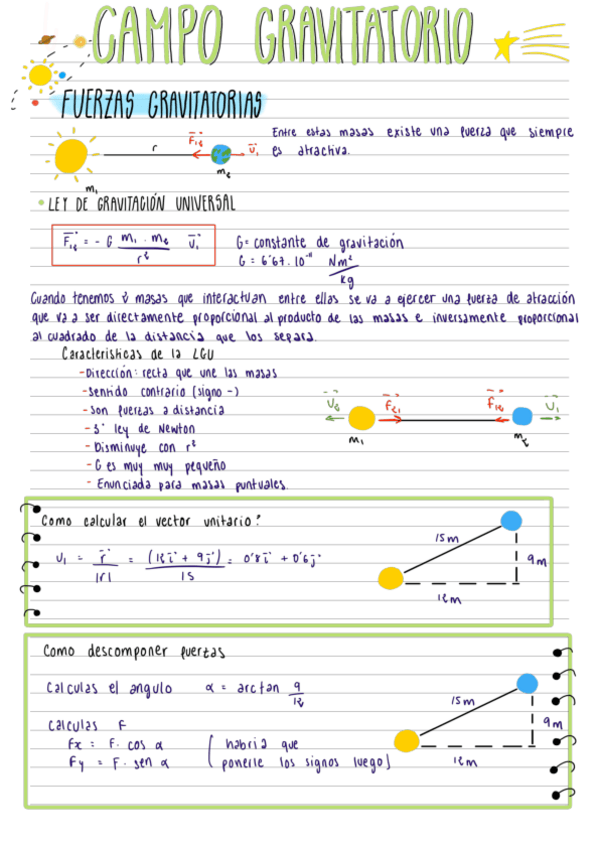 CAMPO GRAVITATORIO
FUERZAS GRAVITATORIAS
Entre estas masas existe una fuerza que siempre
es atractiva.
r F₁₂ U₁
m₁ m₂
• LEY DE GRAVITACIÓN UNIVERSAL
F₁₂ = - G m₁ . m₂ / r² U₁
G = constante de gravitación
G = 6'67.10⁻¹¹ Nm² / kg
Cuando tenemos 2 masas que interactuan entre ellas se va a ejercer una fuerza de atracción
que va a ser directamente proporcional al producto de las masas e inversamente proporcional
al cuadrado de la distancia que los separa.
Caracteristicas de la LGU
- Dirección: recta que une las masas
- Sentido contrario (signo -)
- Son fuerzas a distancia
- 3° ley de Newton
- Disminuye con r²
- G es muy muy pequeño
- Enunciada para masas puntuales.
U₂ F₂₁ F₁₂ U₁
m₁ m₂
Como calcular el vector unitario?
U₁ = r / |r| = (12i + 9j) / 15 = 0'8i + 0'6j
15m
9m
12m
Como descomponer fuerzas
Calculas el angulo α = arctan 9/12
Calculas F
Fx = F. cos α (habria que
Fy = F. sen α ponerle los signos luego)
15m
9m
12m